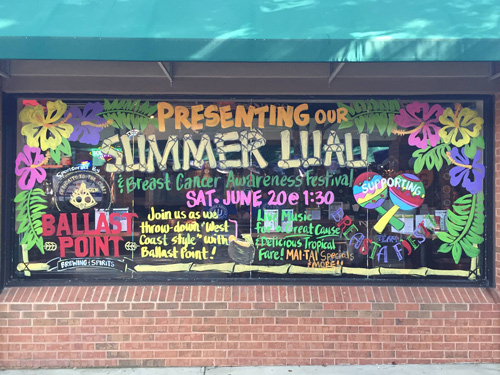 PRESENTING OUR
SUMMER LUAU
& Breast Cancer Awareness Festival
SAT. JUNE 20 @ 1:30
Sponsored By
BALLAST
POINT
BREWING & SPIRITS
Join us as we
throw-down "West
Coast style" with
Ballast Point!
Live Music
for a Great Cause
Delicious Tropical
Fare! MAI-TAI Specials
& MORE!!
SUPPORTING
BREASTA
FIESTA